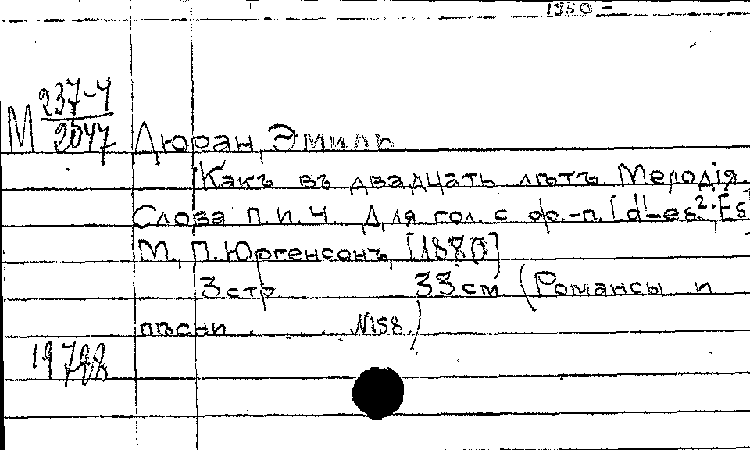 1880 -
М 237-4/2047
Дюран, Эмиль
Какъ въ двадцать лѣтъ Мелодія.
Слова П. И. Ч. Для гол. с ф.-п. [d¹-es²; Es]
М., П. Юргенсонъ, [1880]
3 стр 33 см (Романсы и
пѣсни . . . №58.)
19788